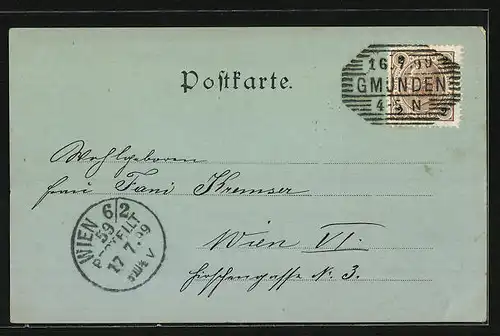 16 7 99
GMUNDEN
4-5 N
2
Postkarte.
Wohlgeboren
Frau Fani Kremser
Wien VI.
Hirschengasse N. 3.
WIEN 6/2
59
BESTELLT
17 7 99
V